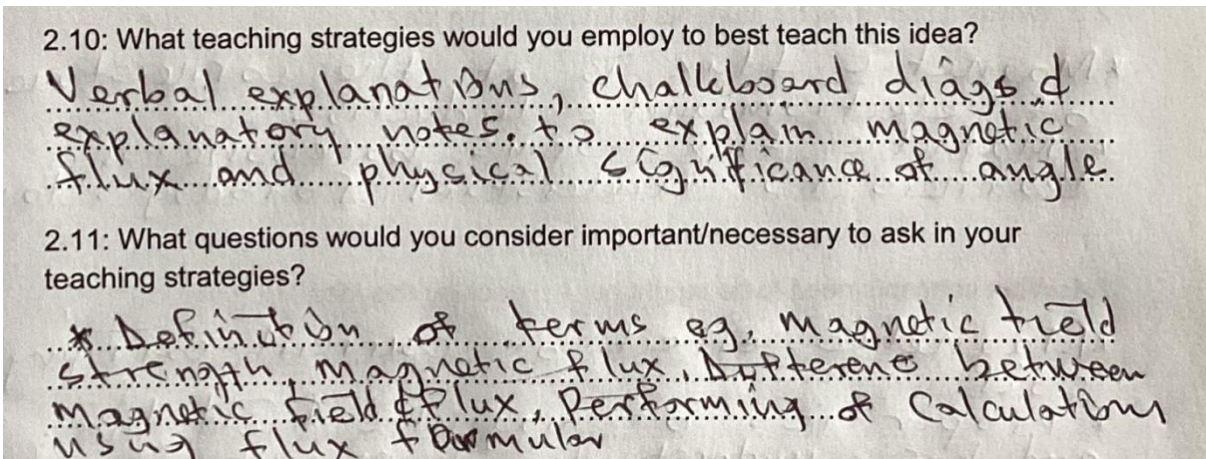 2.10: What teaching strategies would you employ to best teach this idea?
Verbal explanations, chalkboard diags &
explanatory notes. to explain magnetic
flux and physical significance of angle.
2.11: What questions would you consider important/necessary to ask in your
teaching strategies?
* Definition of terms eg. magnetic field
strength, magnetic flux, Difference between
magnetic field & flux, Performing of calculations
using flux formular